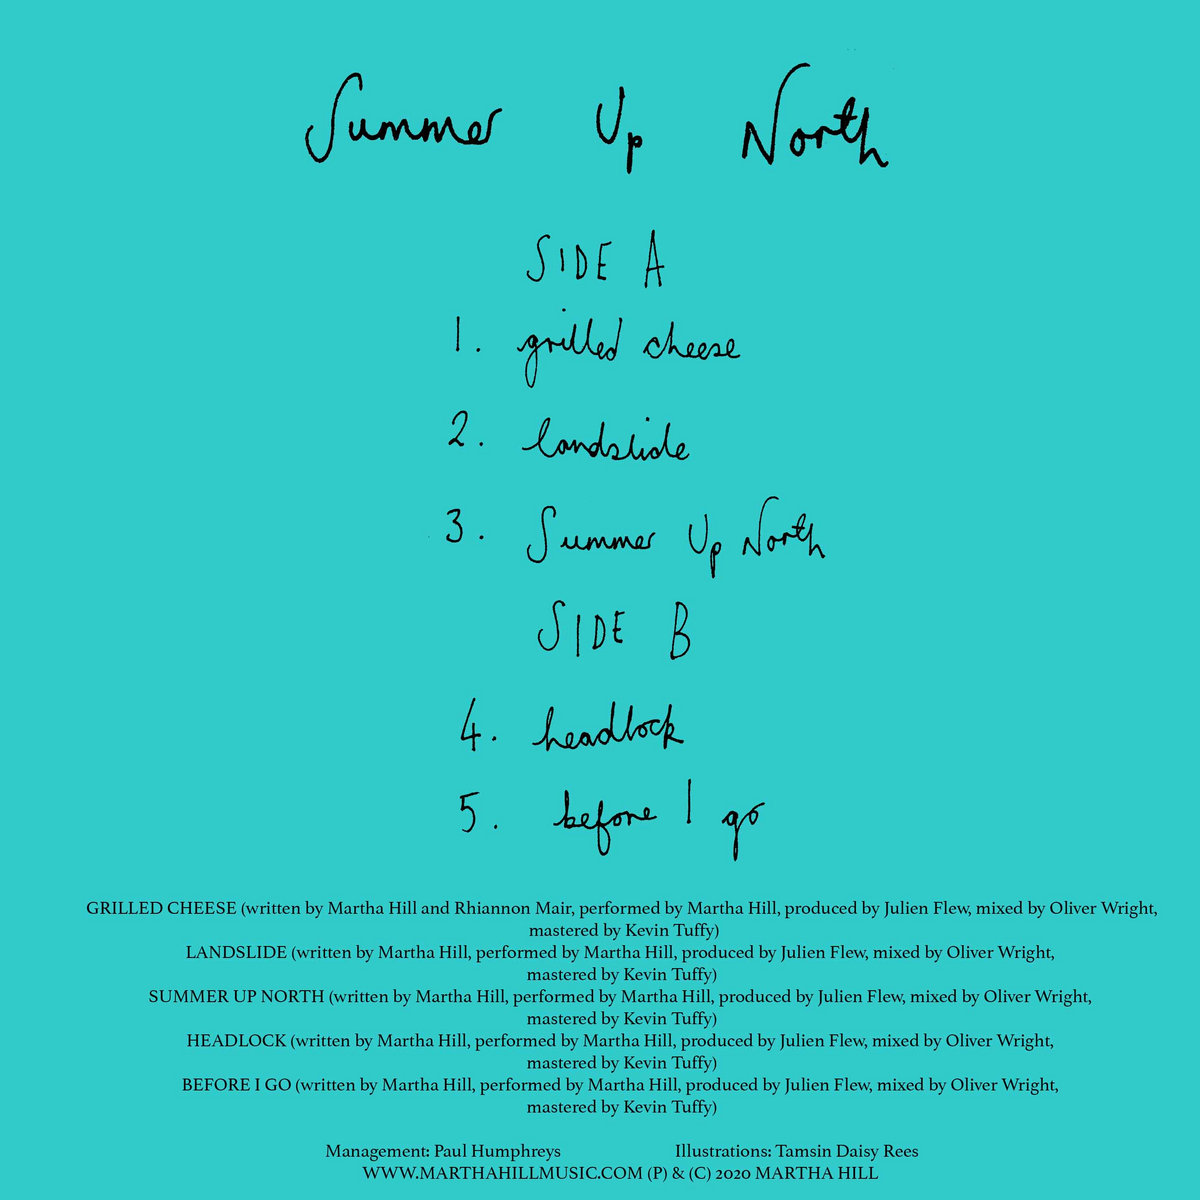 Summer Up North
SIDE A
1. grilled cheese
2. landslide
3. Summer Up North
SIDE B
4. headlock
5. before I go
GRILLED CHEESE (written by Martha Hill and Rhiannon Mair, performed by Martha Hill, produced by Julien Flew, mixed by Oliver Wright,
mastered by Kevin Tuffy)
LANDSLIDE (written by Martha Hill, performed by Martha Hill, produced by Julien Flew, mixed by Oliver Wright,
mastered by Kevin Tuffy)
SUMMER UP NORTH (written by Martha Hill, performed by Martha Hill, produced by Julien Flew, mixed by Oliver Wright,
mastered by Kevin Tuffy)
HEADLOCK (written by Martha Hill, performed by Martha Hill, produced by Julien Flew, mixed by Oliver Wright,
mastered by Kevin Tuffy)
BEFORE I GO (written by Martha Hill, performed by Martha Hill, produced by Julien Flew, mixed by Oliver Wright,
mastered by Kevin Tuffy)
Management: Paul Humphreys Illustrations: Tamsin Daisy Rees
WWW.MARTHAHILLMUSIC.COM (P) & (C) 2020 MARTHA HILL